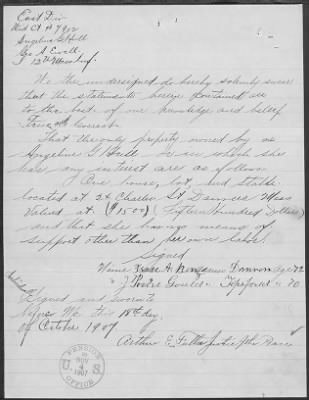 East Div
Wid Ct # 7902
Angeline G Hill
Geo A
I 12th
We the undersigned do hereby solemly swear
that the statements herein contained are
to the best of our knowledge and belief
True and Correct
That the only property owned by
Angeline G Hill or in which she
has any interest are as follows
One house, lot, and stable
located at 24 Charles St Danvers Mass
Valued at ($1500) (Fifteen hundred Dollars)
and that she has no means of
support other than her own labor.
Signed
A Danvers Age 72
J Porter Topsfield " 70
Signed and sworn to
before Me this 18th day
of October 1907
Arthur E Justice of the Peace
PENSION
NOV
4
1907
U S
OFFICE